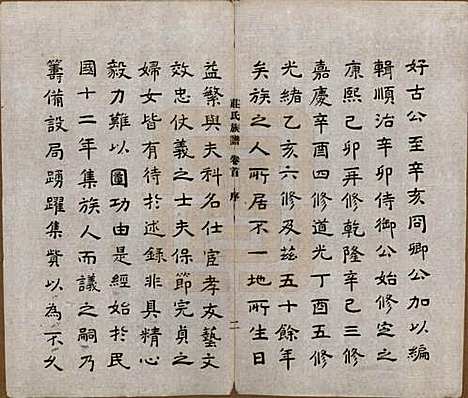 好古公至辛亥同卿公加以編
輯順治辛卯侍御公始修定之
康熙己卯再修乾隆辛巳三修
嘉慶辛酉四修道光丁酉五修
光緒乙亥六修及茲五十餘年
矣族之人所居不一地所生日
莊氏族譜 卷首 序 二
益繁與夫科名仕宦孝友藝文
效忠仗義之士夫保節完貞之
婦女皆有待於述錄非具精心
毅力難以圖功由是經始於民
國十二年集族人而議之嗣乃
籌備設局踴躍集貲以為不久